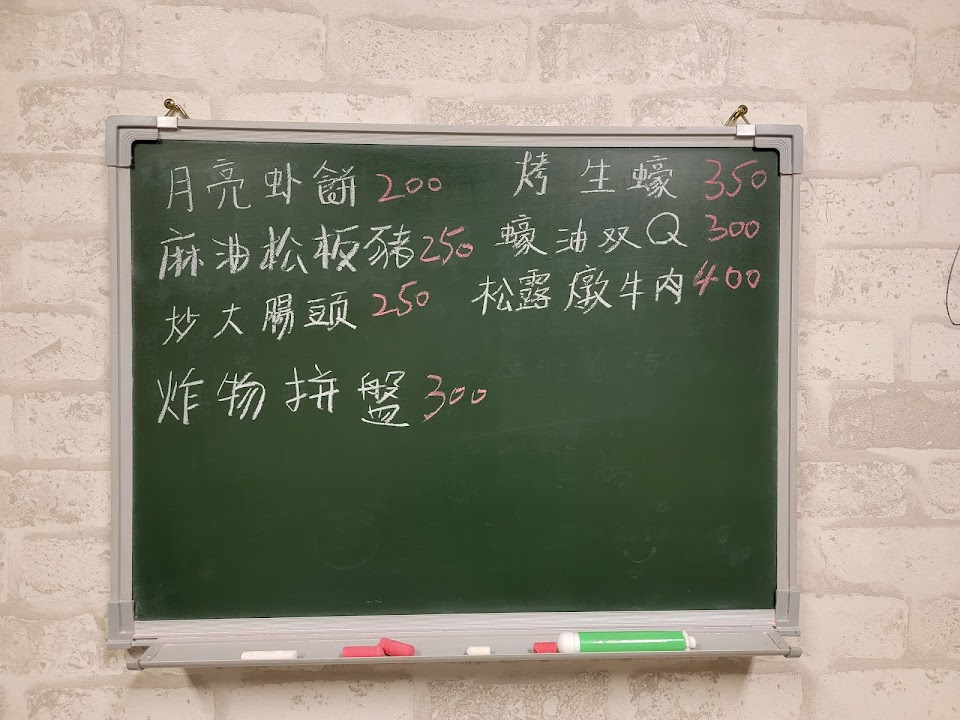 月亮虾餅 200
麻油松板豬 250
炒大腸頭 250
炸物拼盤 300
烤生蠔 350
蠔油双Q 300
松露燉牛肉 400